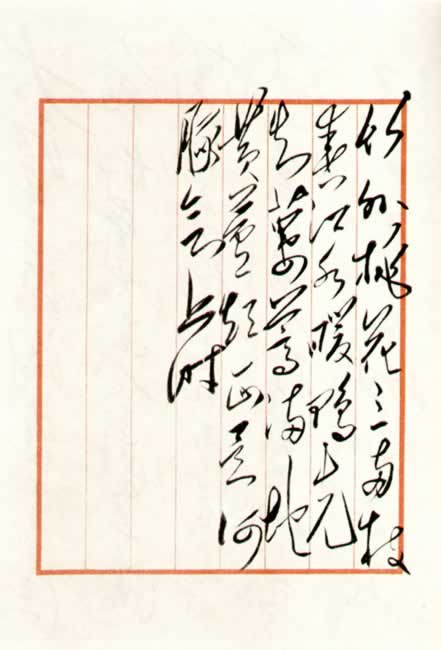 竹外桃花三两枝
春江水暖鴨先
知蒌蒿满地
黄蘆短正是河
豚上时